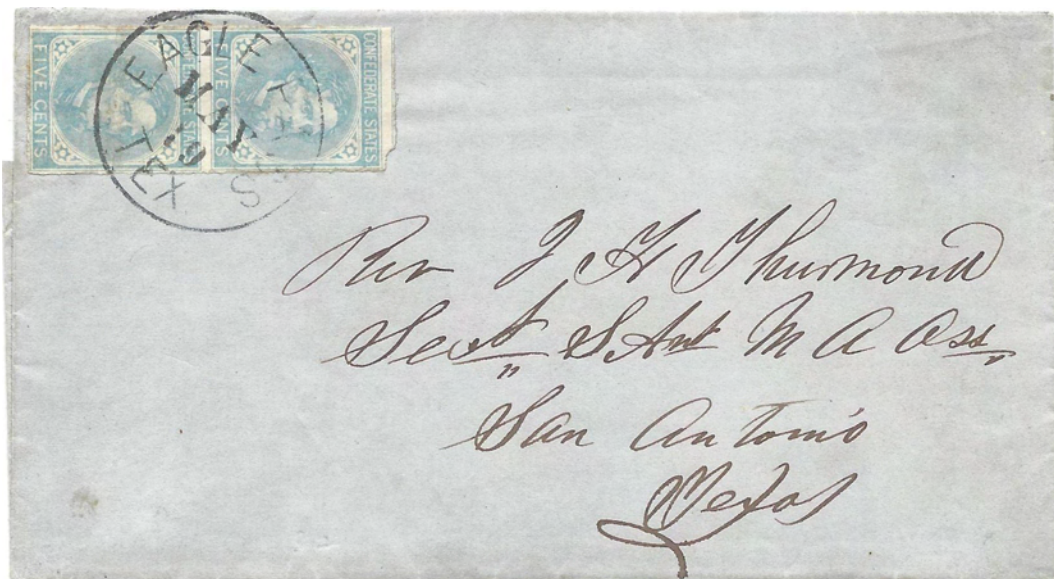 FIVE CENTS
CONFEDERATE STATES
FIVE CENTS
CONFEDERATE STATES
EAGLE PASS
TEX
MAY
Rev J H Thurmond
Sect S Ant M A Ass
San Antonio
Texas